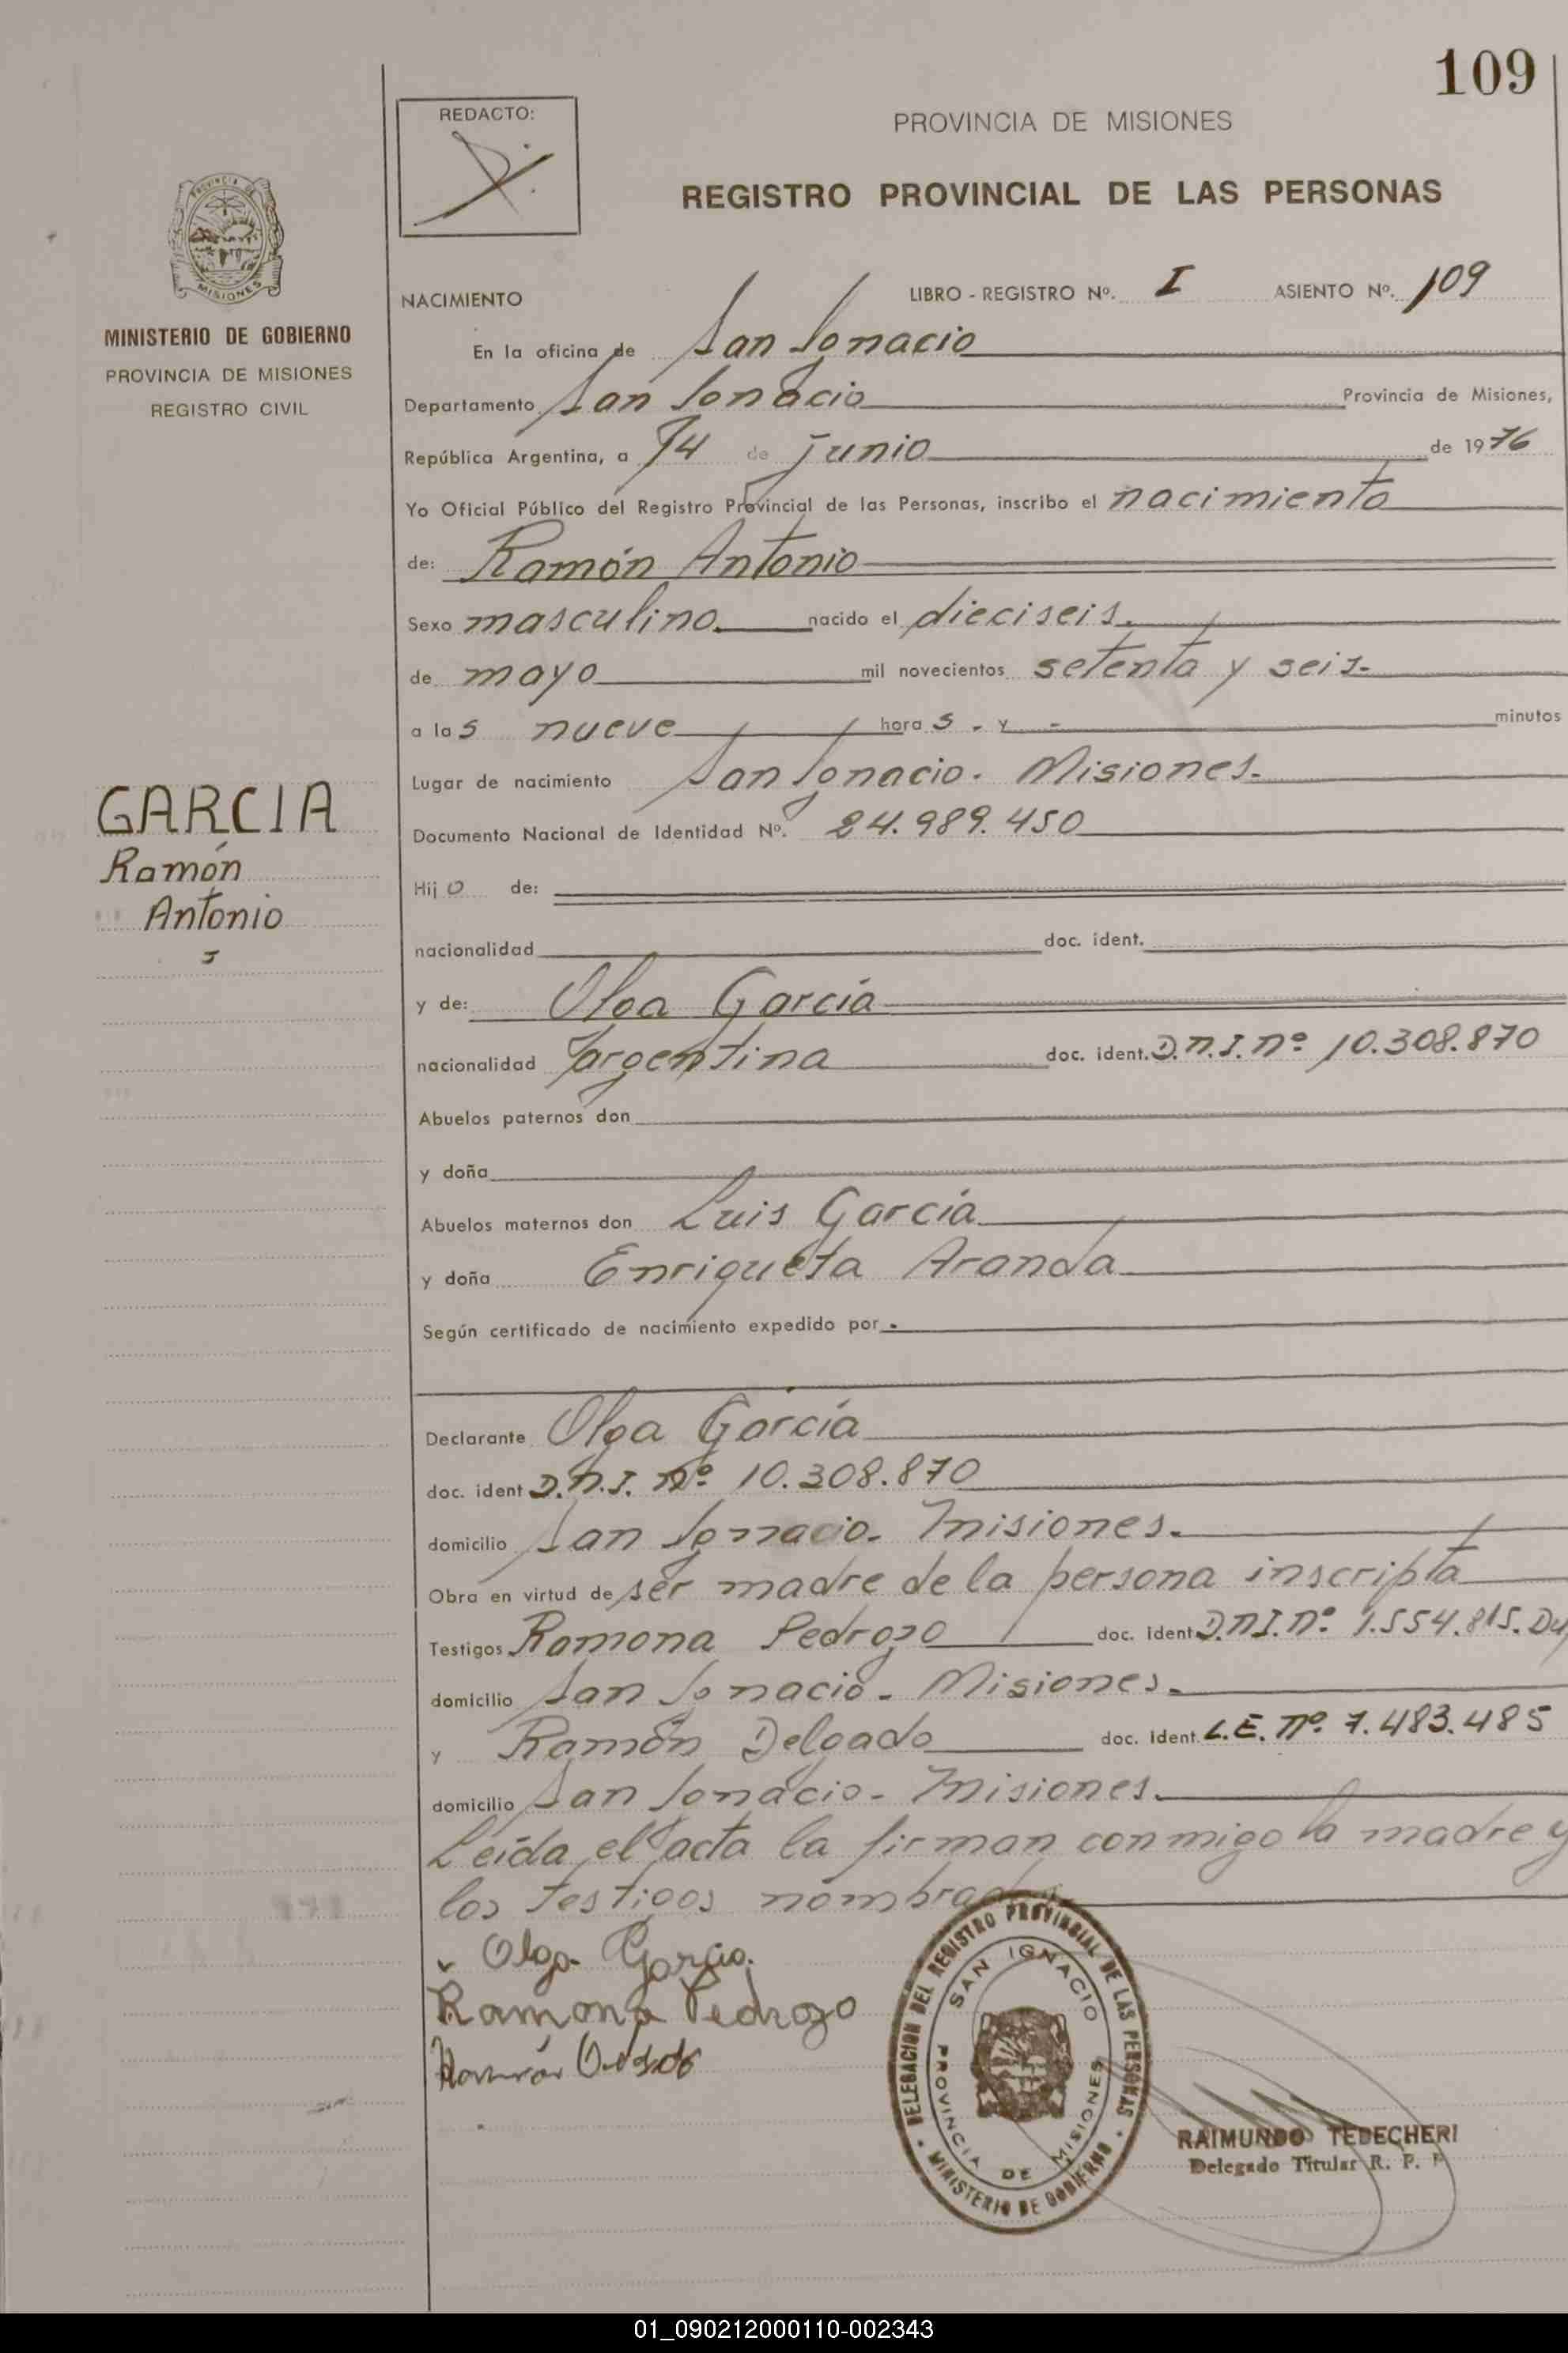 109
REDACTO:
PROVINCIA DE MISIONES
REGISTRO PROVINCIAL DE LAS PERSONAS
PROVINCIA DE MISIONES
MINISTERIO DE GOBIERNO
PROVINCIA DE MISIONES
REGISTRO CIVIL
NACIMIENTO LIBRO - REGISTRO Nº. I ASIENTO Nº. 109
En la oficina de San Ignacio
Departamento San Ignacio Provincia de Misiones,
República Argentina, a 14 de junio de 1976
Yo Oficial Público del Registro Provincial de las Personas, inscribo el nacimiento
de: Ramón Antonio
Sexo masculino. nacido el dieciseis.
de mayo mil novecientos setenta y seis-
a las nueve horas - y -  minutos
Lugar de nacimiento San Ignacio. Misiones.
GARCIA
Ramón
Antonio
Documento Nacional de Identidad Nº. 24.989.450
Hijo de:
nacionalidad doc. ident.
y de: Olga García
nacionalidad argentina doc. ident. D.N.I. nº 10.308.870
Abuelos paternos don
y doña
Abuelos maternos don Luis García
y doña Enriqueta Aranda
Según certificado de nacimiento expedido por -
Declarante Olga García
doc. ident D.N.I. nº 10.308.870
domicilio San Ignacio. Misiones.
Obra en virtud de ser madre de la persona inscripta
Testigos Ramona Pedrozo doc. ident D.N.I. nº 1.554.815.
domicilio San Ignacio - Misiones.
y Ramón Delgado doc. ident. L.E. nº 7.483.485
domicilio San Ignacio - Misiones.
Leída el acta la firman conmigo la madre y
los testigos nombrados
Olga García.
Ramona Pedrozo
Ramón
DELEGACION DEL REGISTRO PROVINCIAL DE LAS PERSONAS
SAN IGNACIO
PROVINCIA DE MISIONES
MINISTERIO DE GOBIERNO
RAIMUNDO TEDECHERI
Delegado Titular R. P. P
01_090212000110-002343